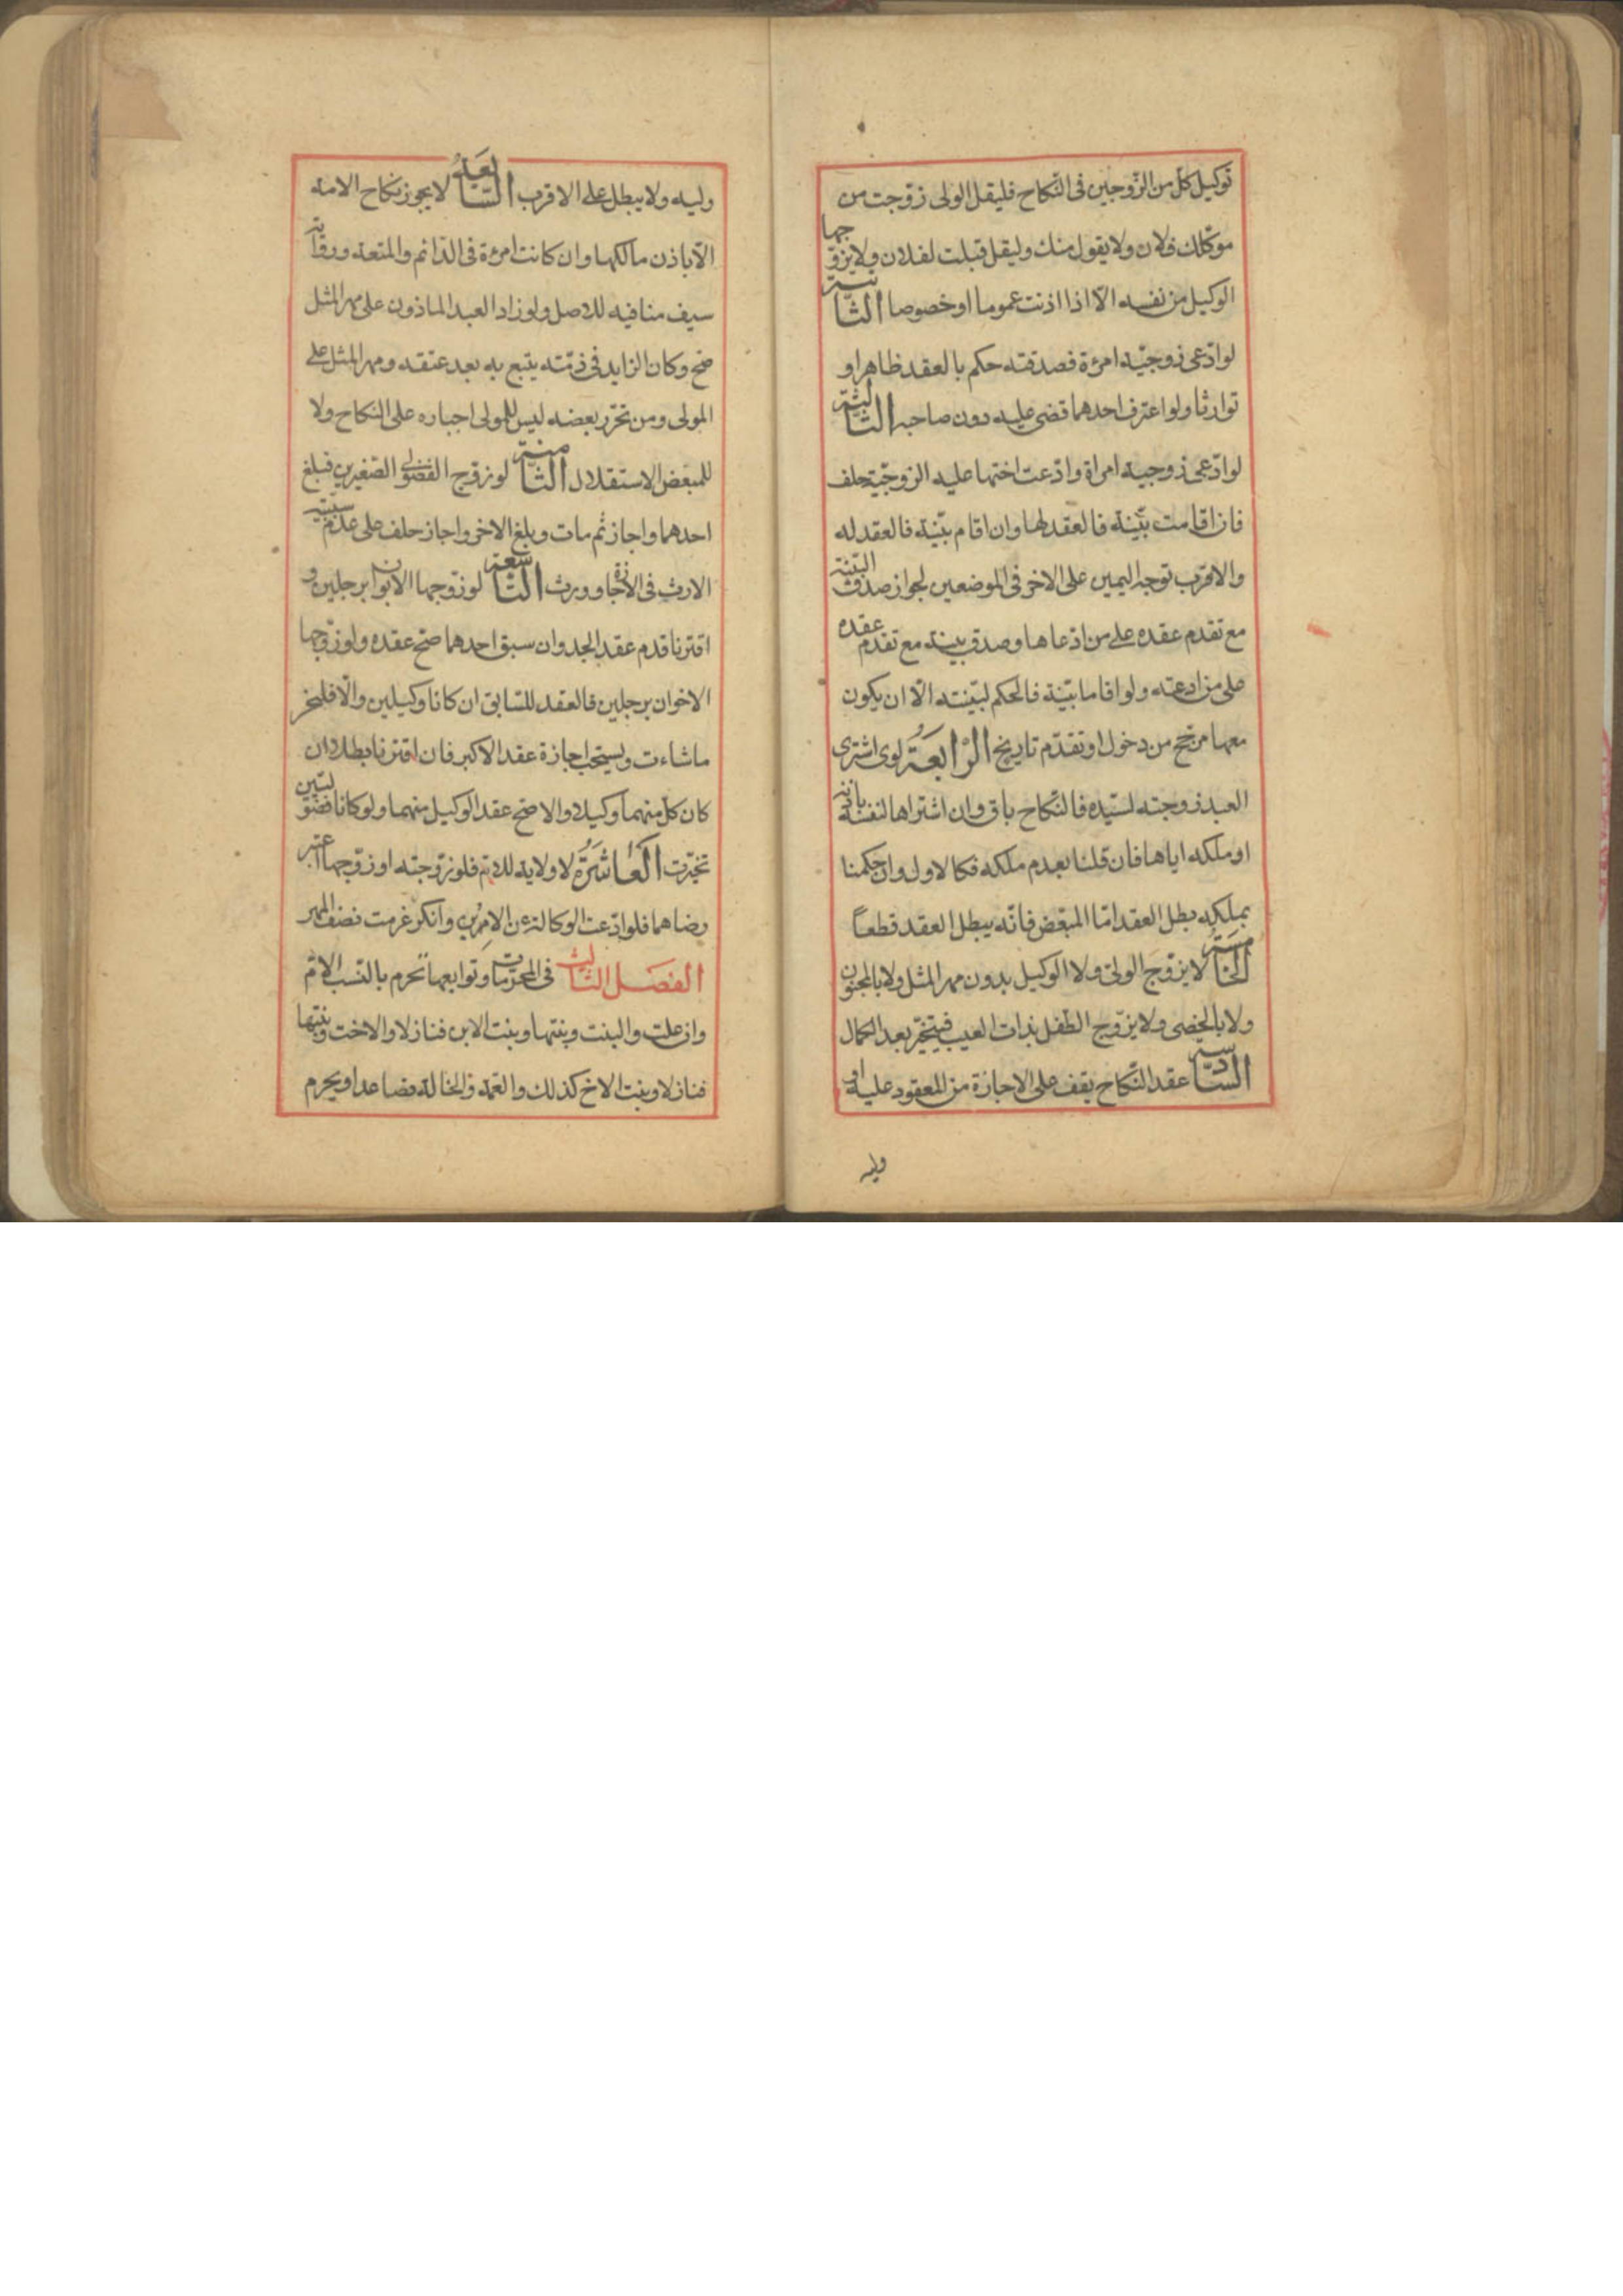 توكيل كل من الزّوجين فى النّكاح فليقل الولى زوّجت من
موكّلك فلان ولا يقول منك وليقل قبلت لفلان ولا يزوّجها
الوكيل من نفسه الّا اذا اذنت عموما او خصوصا الثانية
لو ادّعى زوجيّة امرءة فصدقته حكم بالعقد ظاهرا و
توارثا ولو اعترف احدهما قضى عليه دون صاحبه الثالثة
لو ادّعى زوجية امراة وادّعت اختها عليه الزوجيّة حلف
فان اقامت بيّنة فالعقد لها وان اقام بيّنة فالعقد له
والاقرب توجه اليمين على الاخر فى الموضعين لجواز صدق البيّنة
مع تقدم عقده على من ادعاها وصدق بينة مع تقدم عقده
على من ادعته ولو اقاما بيّنة فالحكم لبيّنته الّا ان يكون
معها مرجّح من دخول او تقدّم تاريخ الرّابعة لو اشترى
العبد زوجته لسيّده فالنّكاح باق وان اشتراها لنفسه باذنه
او ملكه اياها فان قلنا بعدم ملكه فكالاول وان حكمنا
بملكه بطل العقد امّا المبعّض فانّه يبطل العقد قطعاً
الخامسة لا يزوّج الولىّ ولا الوكيل بدون مهر المثل ولا بالمجنون
ولا بالخصى ولا يزوّج الطّفل بذات العيب فيتخيّر بعد الكمال
السّادسة عقد النّكاح يقف على الاجازة من المعقود عليه او
وليه
وليه ولا يبطل على الاقرب السّابعة لا يجوز نكاح الامة
الّا باذن مالكها وان كانت امرءة فى الدّائم والمتعة ورواية
سيف منافية للاصل ولو زاد العبد الماذون على مهر المثل
صحّ وكان الزايد فى ذمّته يتبع به بعد عتقه ومهر المثل على
المولى ومن تحرّر بعضه ليس للمولى اجباره على النكاح ولا
للمبعّض الاستقلال الثامنة لو زوّج الفضولى الصّغيرين فبلغ
احدهما واجاز ثم مات وبلغ الاخر واجاز حلف على عدم سببيّة
الارث فى الاجازة وورث التاسعة لو زوّجها الابوان برجلين و
اقترنا قدم عقد الجد وان سبق احدهما صحّ عقده ولو زوّجها
الاخوان برجلين فالعقد للسّابق ان كانا وكيلين والّا فلتخير
ما شاءت ويستحب اجازة عقد الاكبر فان اقترنا بطلا ان
كان كلّ منهما وكيلا والا صحّ عقد الوكيل منهما ولو كانا فضوليّين
تخيّرت العاشرة لا ولاية للامّ فلو زوّجته او زوّجها اعتبر
رضاهما فلو ادّعت الوكالة عن الابن وانكر غرمت نصف المهر
الفصل الثالث فى المحرّمات وتوابعها تحرم بالنّسب الامّ
وان علت والبنت وبنتها وبنت الابن فنازلا والاخت وبنتها
فنازلا وبنت الاخ كذلك والعمّة والخالة فصاعدا ويحرم